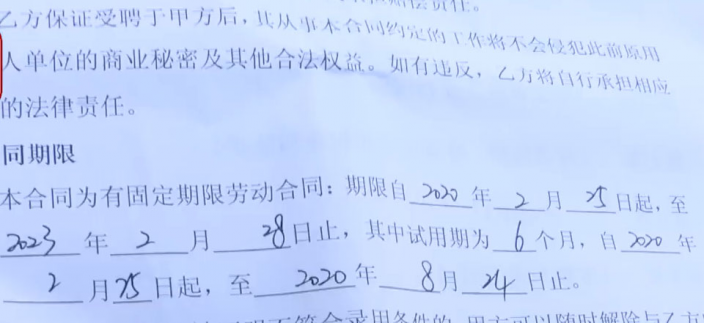 赔偿责任。
乙方保证受聘于甲方后，其从事本合同约定的工作将不会侵犯此前原用
人单位的商业秘密及其他合法权益。如有违反，乙方将自行承担相应
的法律责任。
同期限
本合同为有固定期限劳动合同：期限自2020年2月25日起，至
2023年2月28日止，其中试用期为6个月，自2020年
2月25日起，至2020年8月24日止。
不符合录用条件的，甲方可以随时解除与乙方